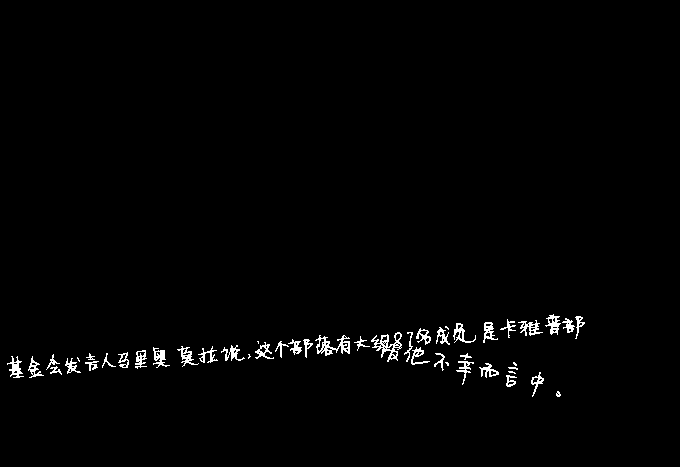 基金会发言人马里奥莫拉说,这个部落有大约87名成员是卡雅普部
被他不幸而言中。